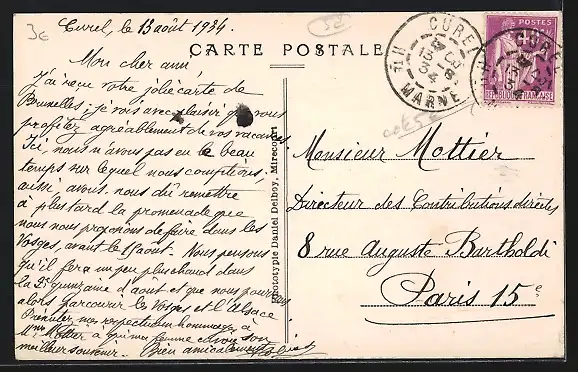 3€
Curel, le 13 août 1934.
CARTE POSTALE
Mon cher ami
J'ai reçu votre jolie carte de
Bruxelles ; je vois avec plaisir que vous
profitez agréablement de vos vacances.
Ici, nous n'avons pas eu le beau
temps sur lequel nous comptions,
aussi, avons-nous dû remettre
à plus tard la promenade que
nous nous proposions de faire dans les
Vosges, avant le 15 août. Nous pensons
qu'il fera un peu plus chaud dans
la 2e quinzaine d'août et que nous pourrons
alors parcourir les Vosges et l'Alsace
Présentez mes respectueux hommages à
Mme Mottier à qui ma femme envoie son
meilleur souvenir. Bien amicalement
Phototypie Daniel Delboy, Mirecourt
CUREL
13 -8
34
Hte MARNE
POSTES
REPUBLIQUE FRANÇAISE
CUREL
Monsieur Mottier
Directeur des Contributions directes
8 rue Auguste Bartholdi
Paris 15e